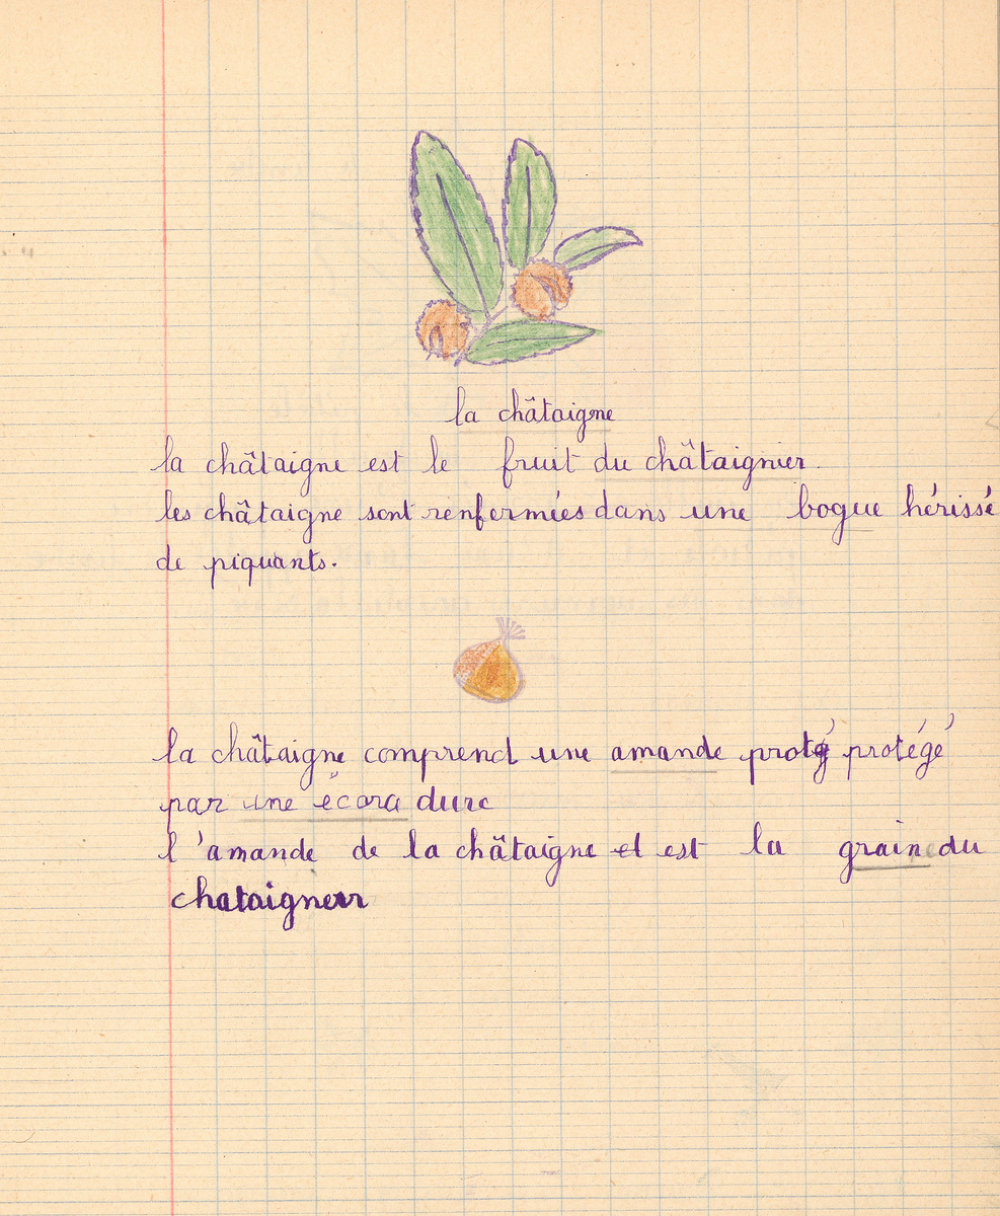 la châtaigne
la châtaigne est le fruit du châtaignier.
les châtaigne sont renfermées dans une bogue hérissé
de piquants.
la châtaigne comprend une amande protg protégé
par une écora dure
l'amande de la châtaigne et est la graine du
chataigner